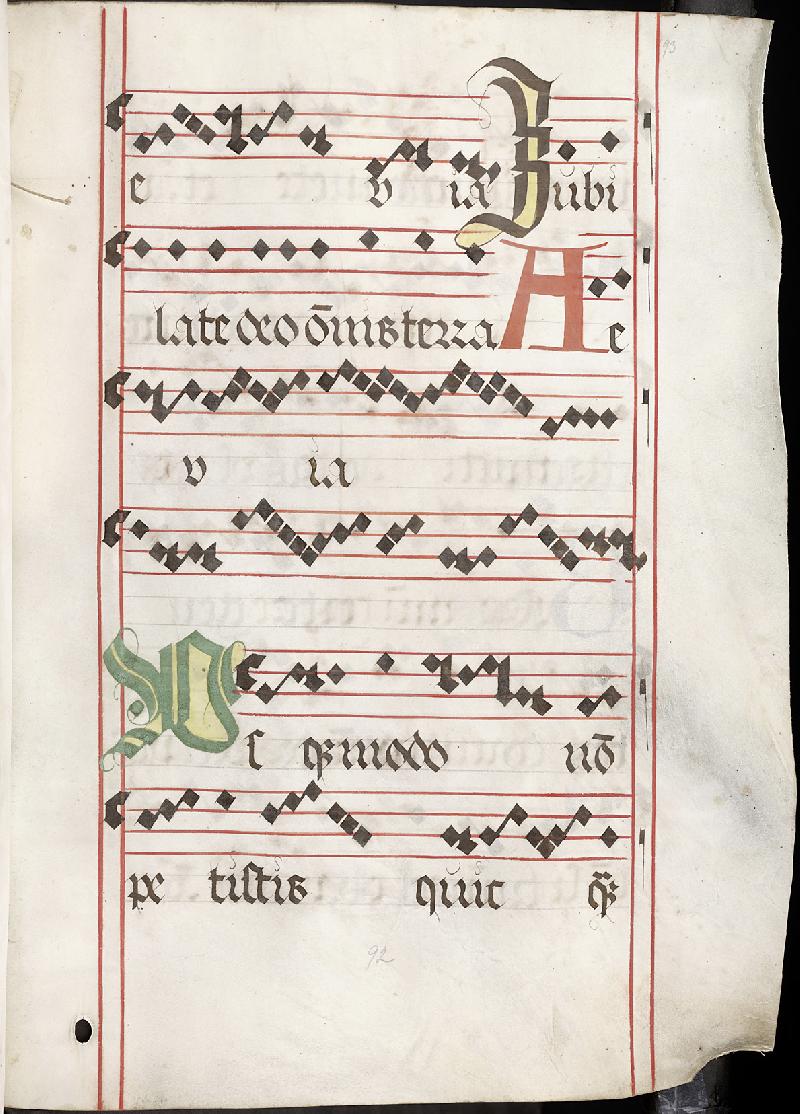 93
e v ia Jubi
late deo ōnis terra Ae
v ia
Us q̨modo nō
pe tistis quic q̨̄
92